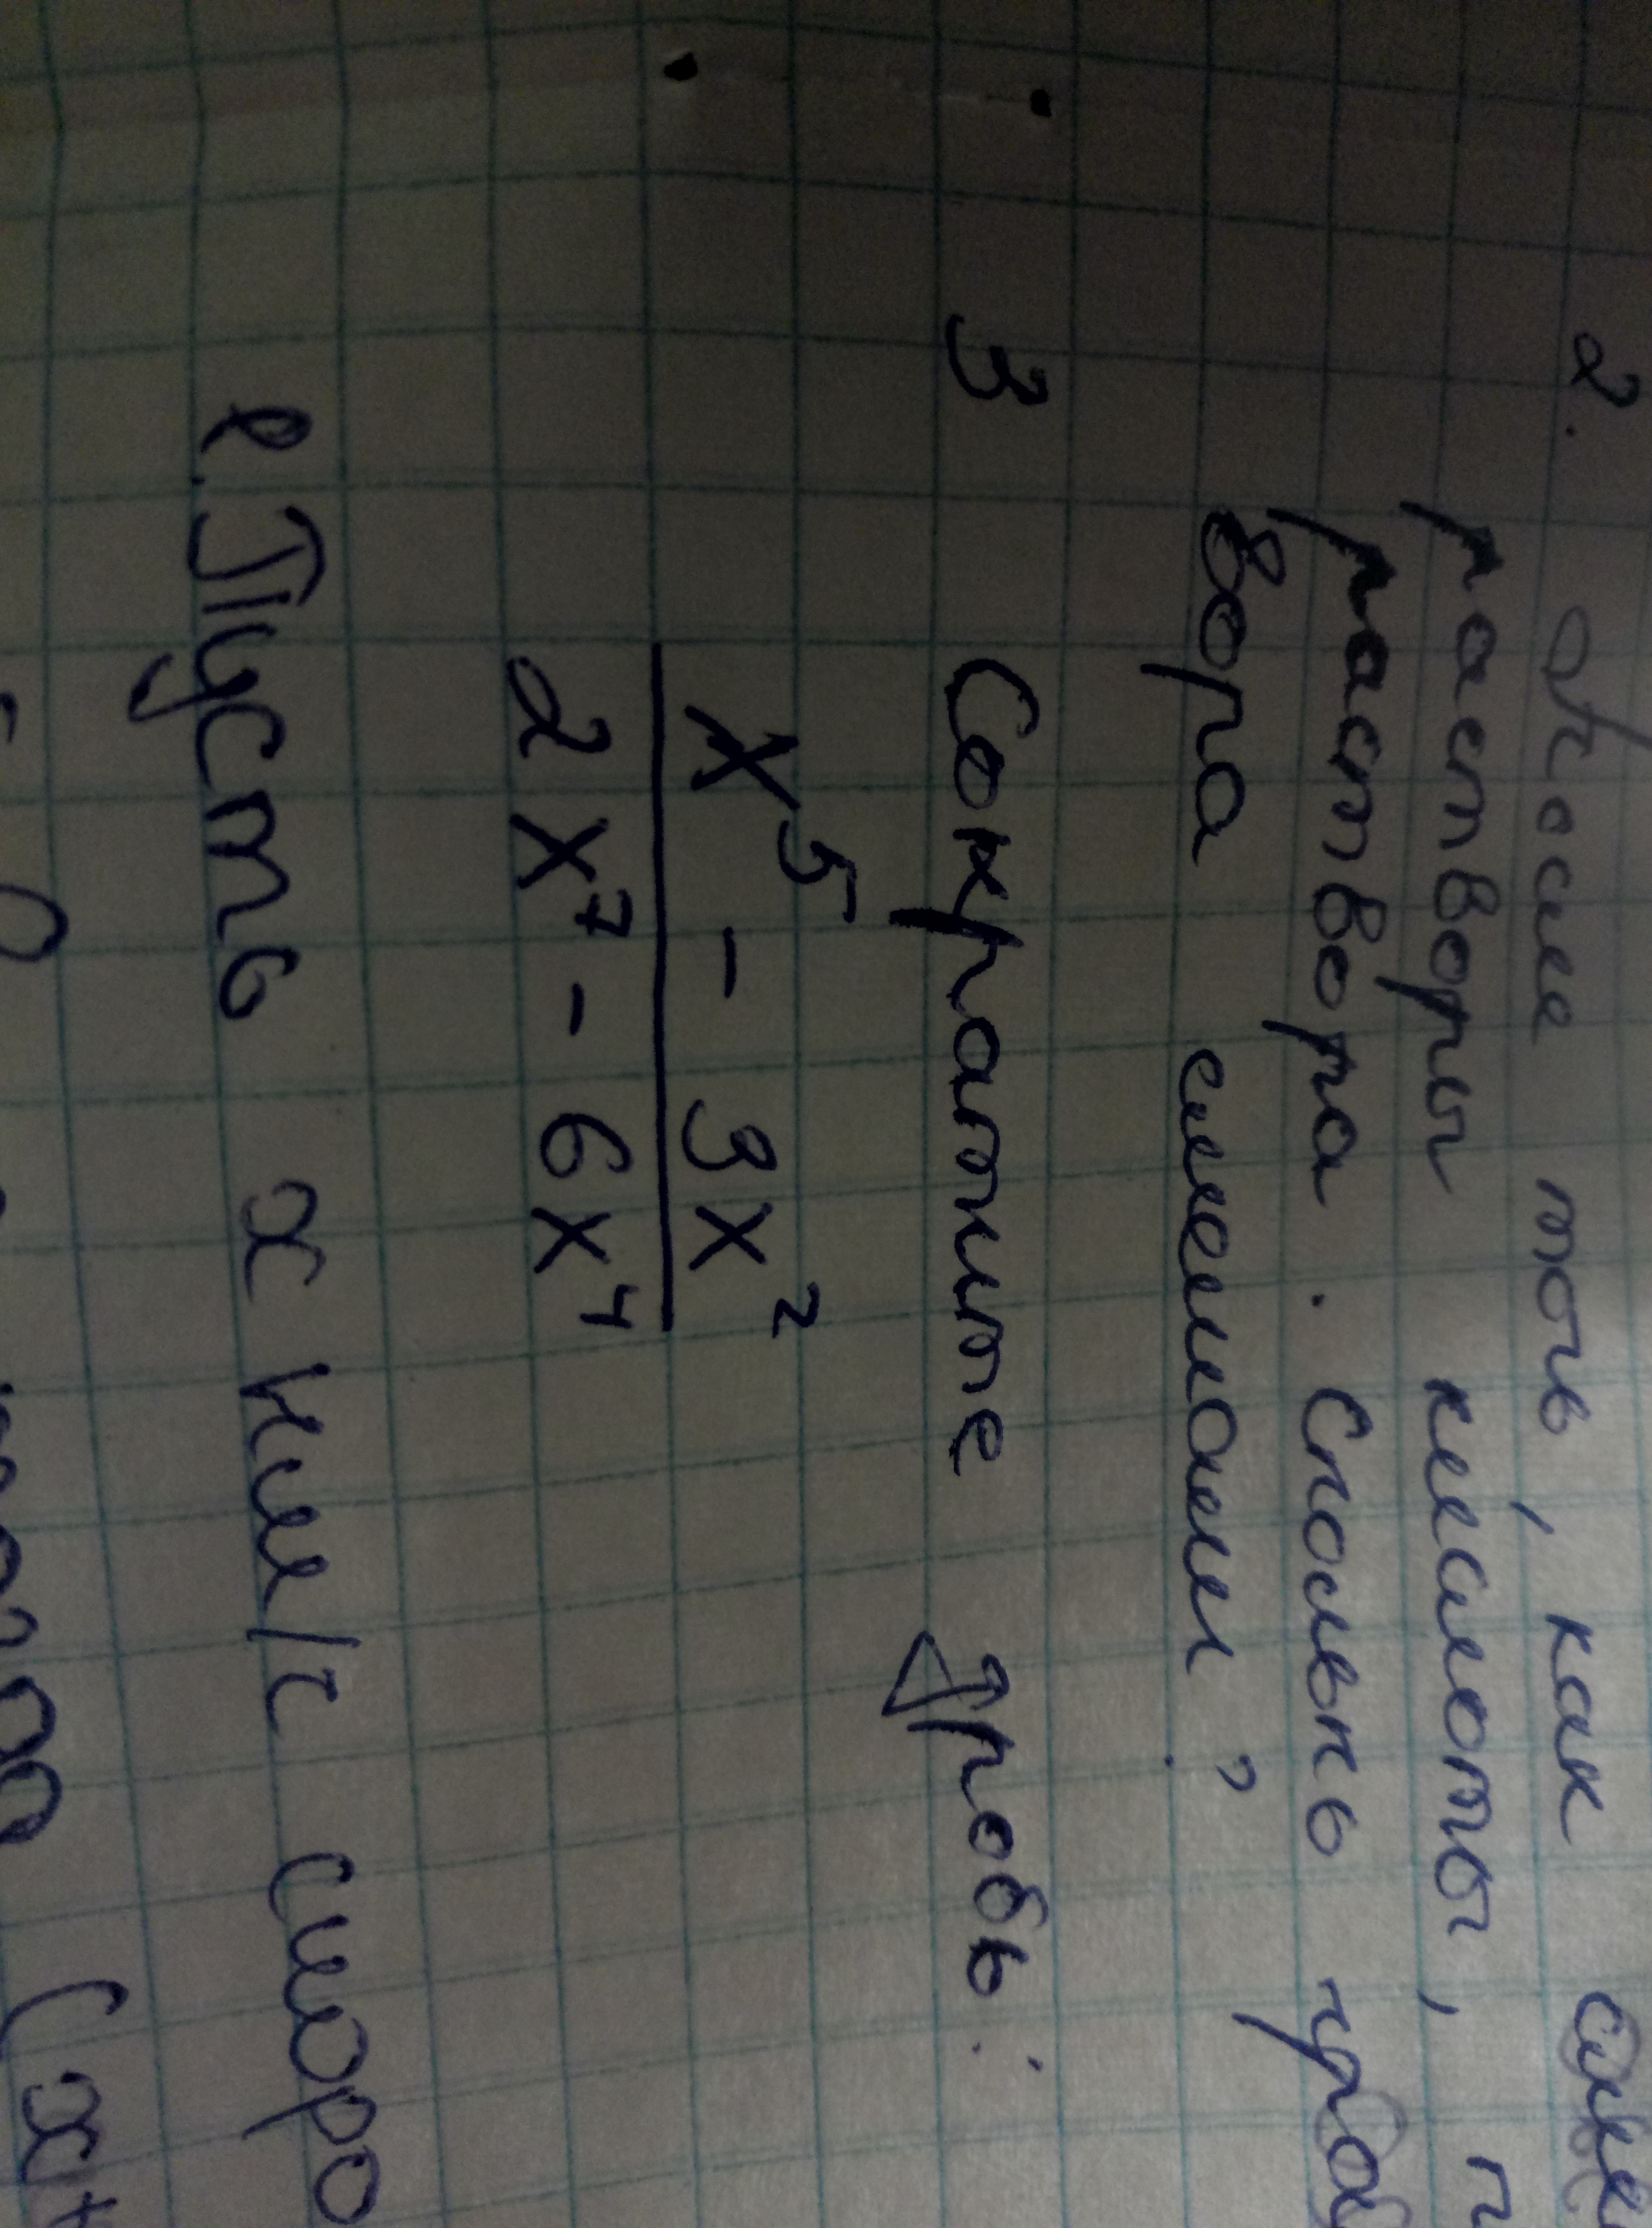 2. После того, как сме
растворы кислоты, п
раствора. Сколько гра
вора смешали?
3 Сократите дробь:
x⁵ - 3x²
2x⁷ - 6x⁴
1. Пусть x км/с скоро
(x+